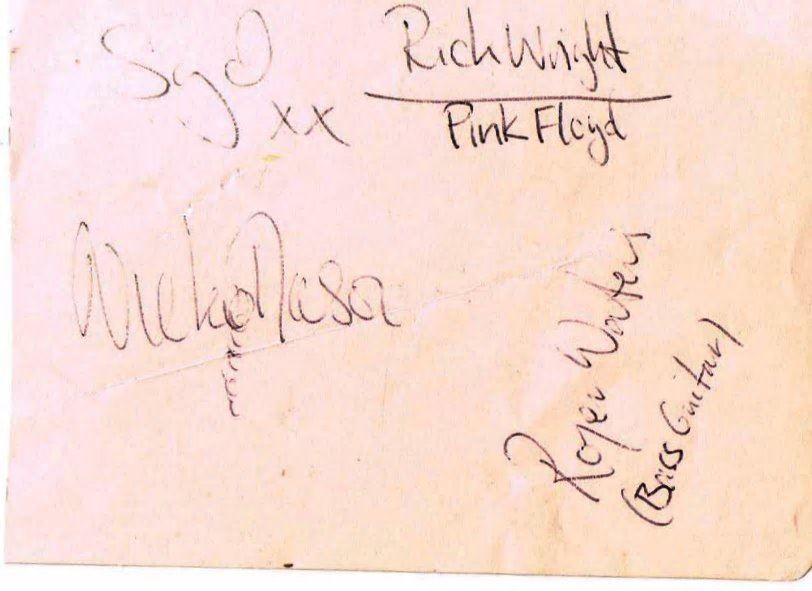 Syd
xx
Rich Wright
Pink Floyd
Nicky Mason
Roger Waters
(Bass Guitar)